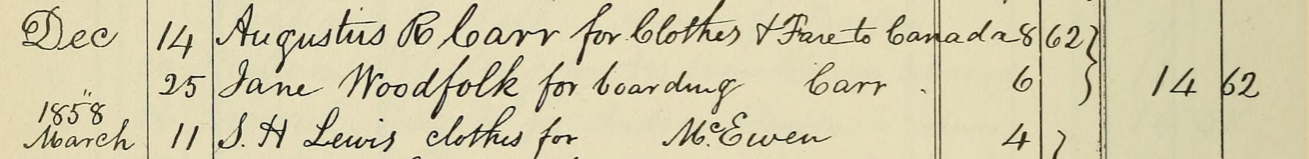 Dec 14 Augustus R Carr for Clothes & Fare to Canada 8 62
25 Jane Woodfolk for boarding Carr . 6 14 62
1858
March 11 S. H Lewis clothes for McEwen 4